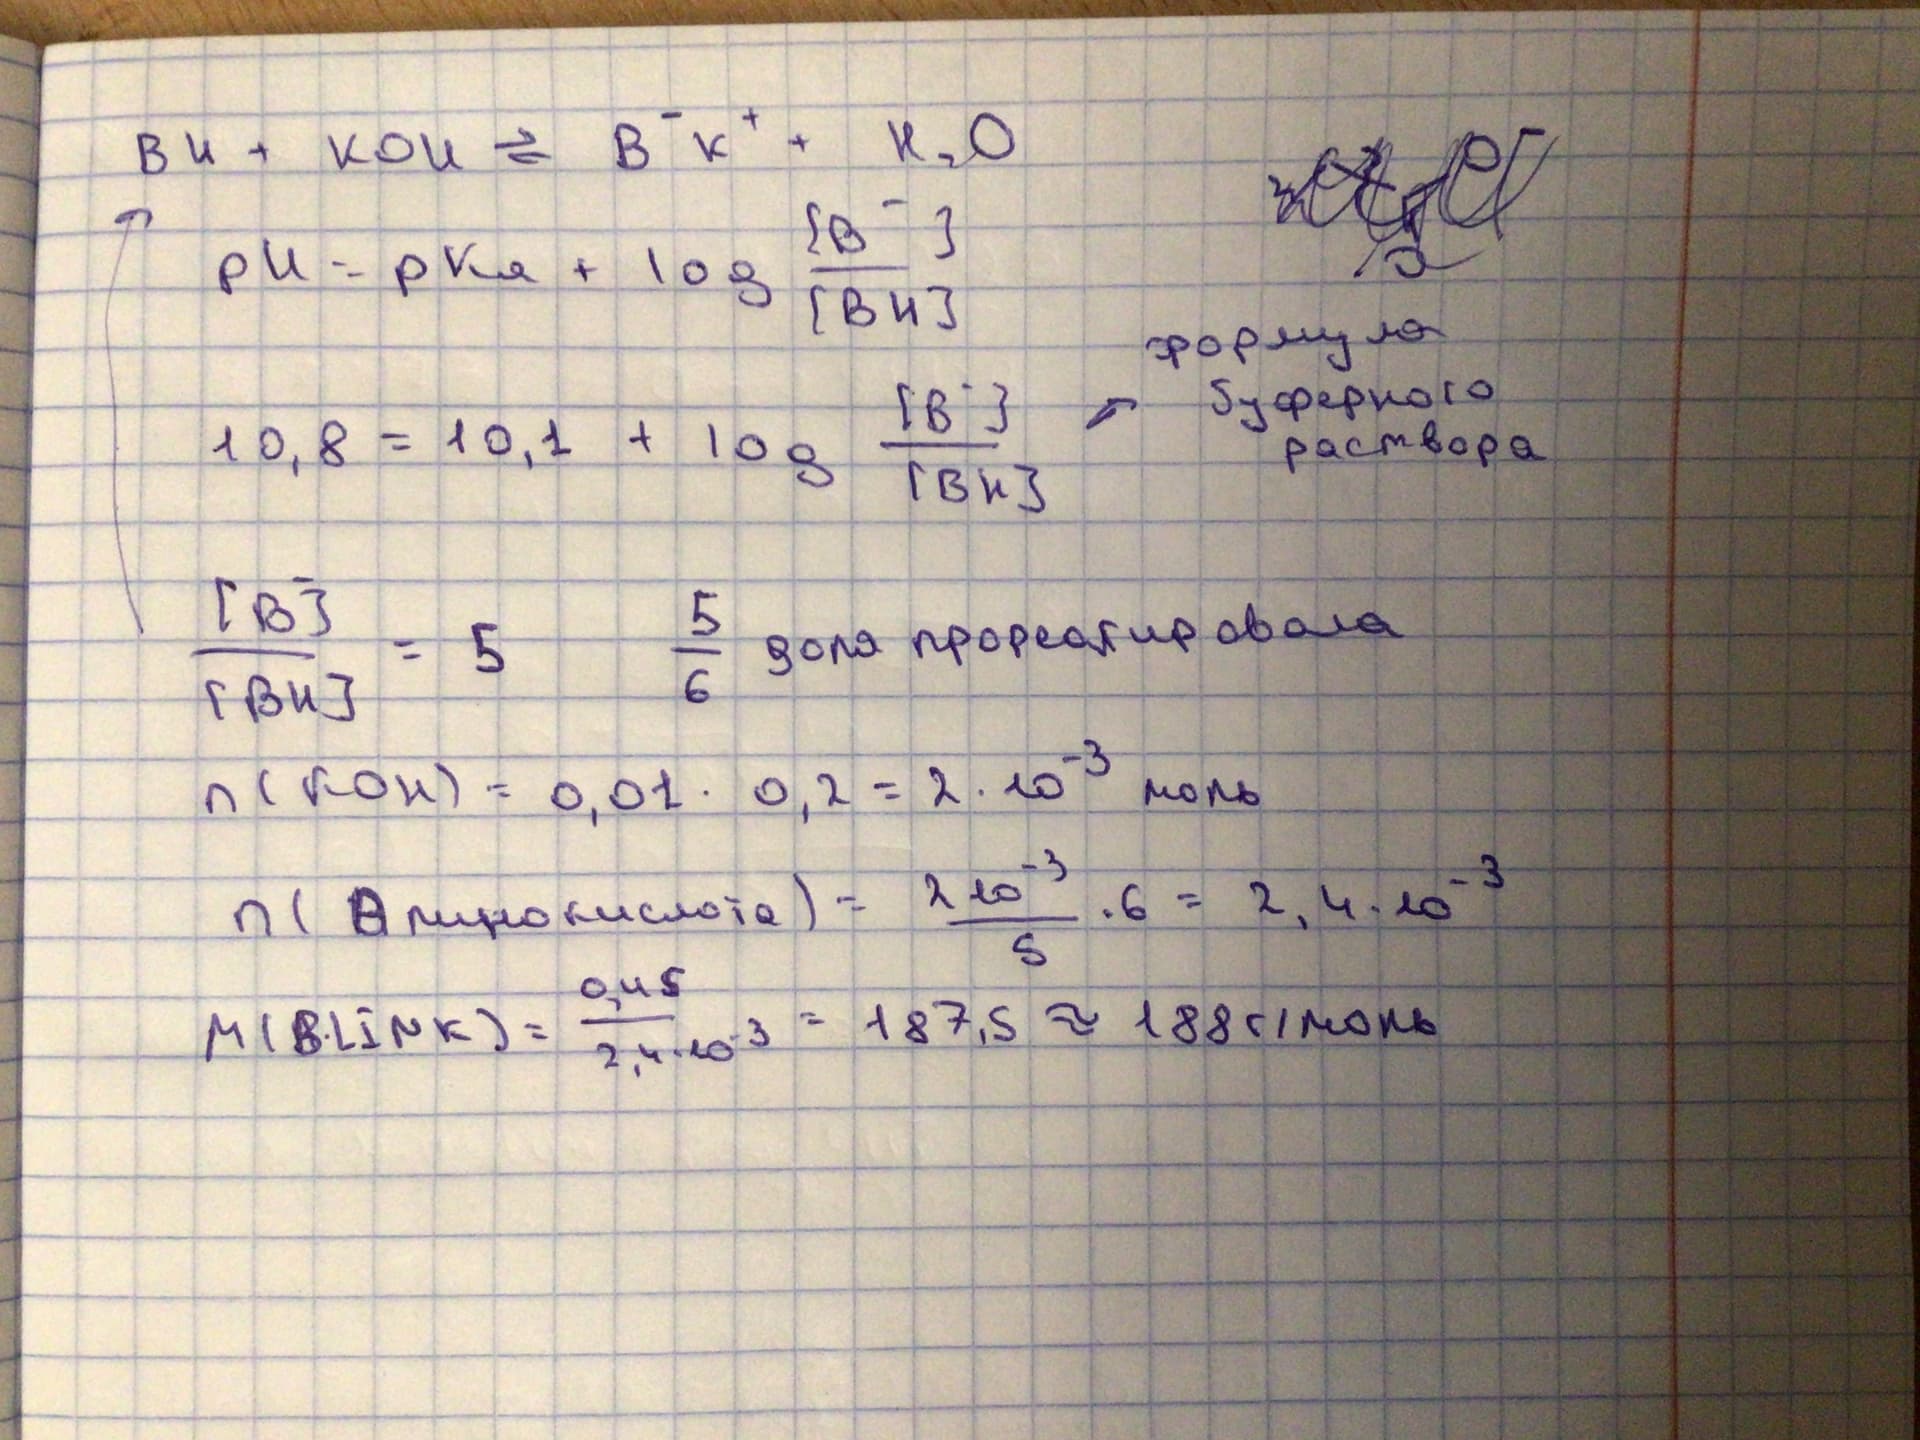 BH + KOH ⇌ B⁻K⁺ + H₂O
pH = pKa + log [B⁻]/[BH]
формула
буферного
раствора
10,8 = 10,1 + log [B⁻]/[BH]
[B⁻]/[BH] = 5 5/6 доля прореагировала
n(KOH) = 0,01 · 0,2 = 2 · 10⁻³ моль
n(Аминокислота) = 2 10⁻³/5 · 6 = 2,4 · 10⁻³
M(BLINK) = 0,45/2,4·10⁻³ = 187,5 ≈ 188 г/моль